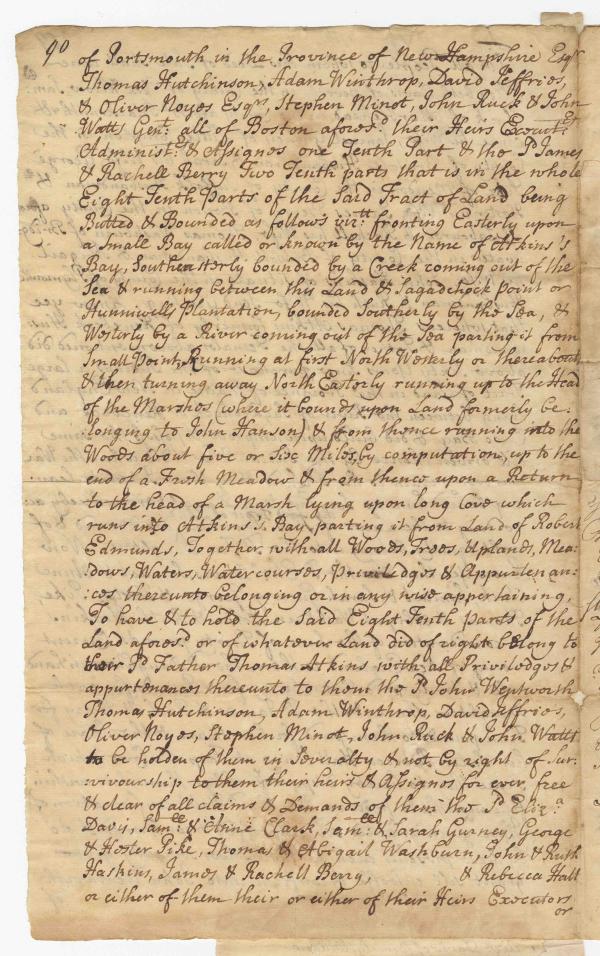 90
of Portsmouth in the Province of New Hampshire Esqr
Thomas Hutchinson, Adam Winthrop, David Jeffries,
& Oliver Noyes Esqrs, Stephen Minot, John Ruck & John
Watts Gent: all of Boston aforesd. their Heirs Executrs
Administrs & Assignes one Tenth Part & the sd James
& Rachell Berry Two Tenth parts that is in the whole
Eight Tenth Parts of the Said Tract of Land being
Butted & Bounded as follows vizt: fronting Easterly upon
a Small Bay called or known by the Name of Atkins's
Bay, Southeasterly bounded by a Creek coming out of the
Sea & running between this Land & Sagadehock Point or
Hunniwells Plantation, bounded Southerly by the Sea, &
Westerly by a River coming out of the Sea parting it from
Small Point, Running at first North Westerly or thereabouts
& then turning away North Easterly running up to the Head
of the Marshes (where it bounds upon Land formerly be:
:longing to John Hanson) & from thence running into the
Woods about five or Six Miles, by computation, up to the
end of a Fresh Meadow & from thence upon a Return
to the head of a Marsh lying upon long Cove which
runs into Atkins's Bay, parting it from Land of Robert
Edmunds, Together with all Woods, Trees, Uplands, Mea:
:dows, Waters, Watercourses, Priviledges & Appurtenan:
:ces thereunto belonging or in any wise appertaining,
To have & to hold the Said Eight Tenth parts of the
Land aforesd. or of whatever Land did of right belong to
their sd Father Thomas Atkins with all Priviledges &
appurtenances thereunto to them the sd John Wentworth
Thomas Hutchinson, Adam Winthrop, David Jeffries,
Oliver Noyes, Stephen Minot, John Ruck & John Watts
to be holden of them in Severalty & not by right of Sur:
:vivourship to them their heirs & Assignes for ever free
& clear of all claims & Demands of them the sd Eliza
Davis, Samll: & Anne Clark, Samll: & Sarah Gurney, George
& Hester Pike, Thomas & Abigail Washburn, John & Ruth
Haskins, James & Rachell Berry, & Rebecca Hall
or either of them their or either of their Heirs Executors
or